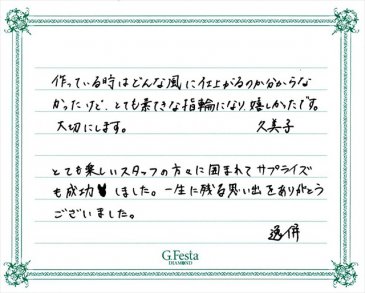 作っている時はどんな風に仕上がるのか分からな
かったけど、とても素てきな指輪になり嬉しかったです。
大切にします。 久美子
とても楽しいスタッフの方々に囲まれてサプライズ
も成功しました。一生に残る思い出をありがとう
ございました。
G.Festa
DIAMOND